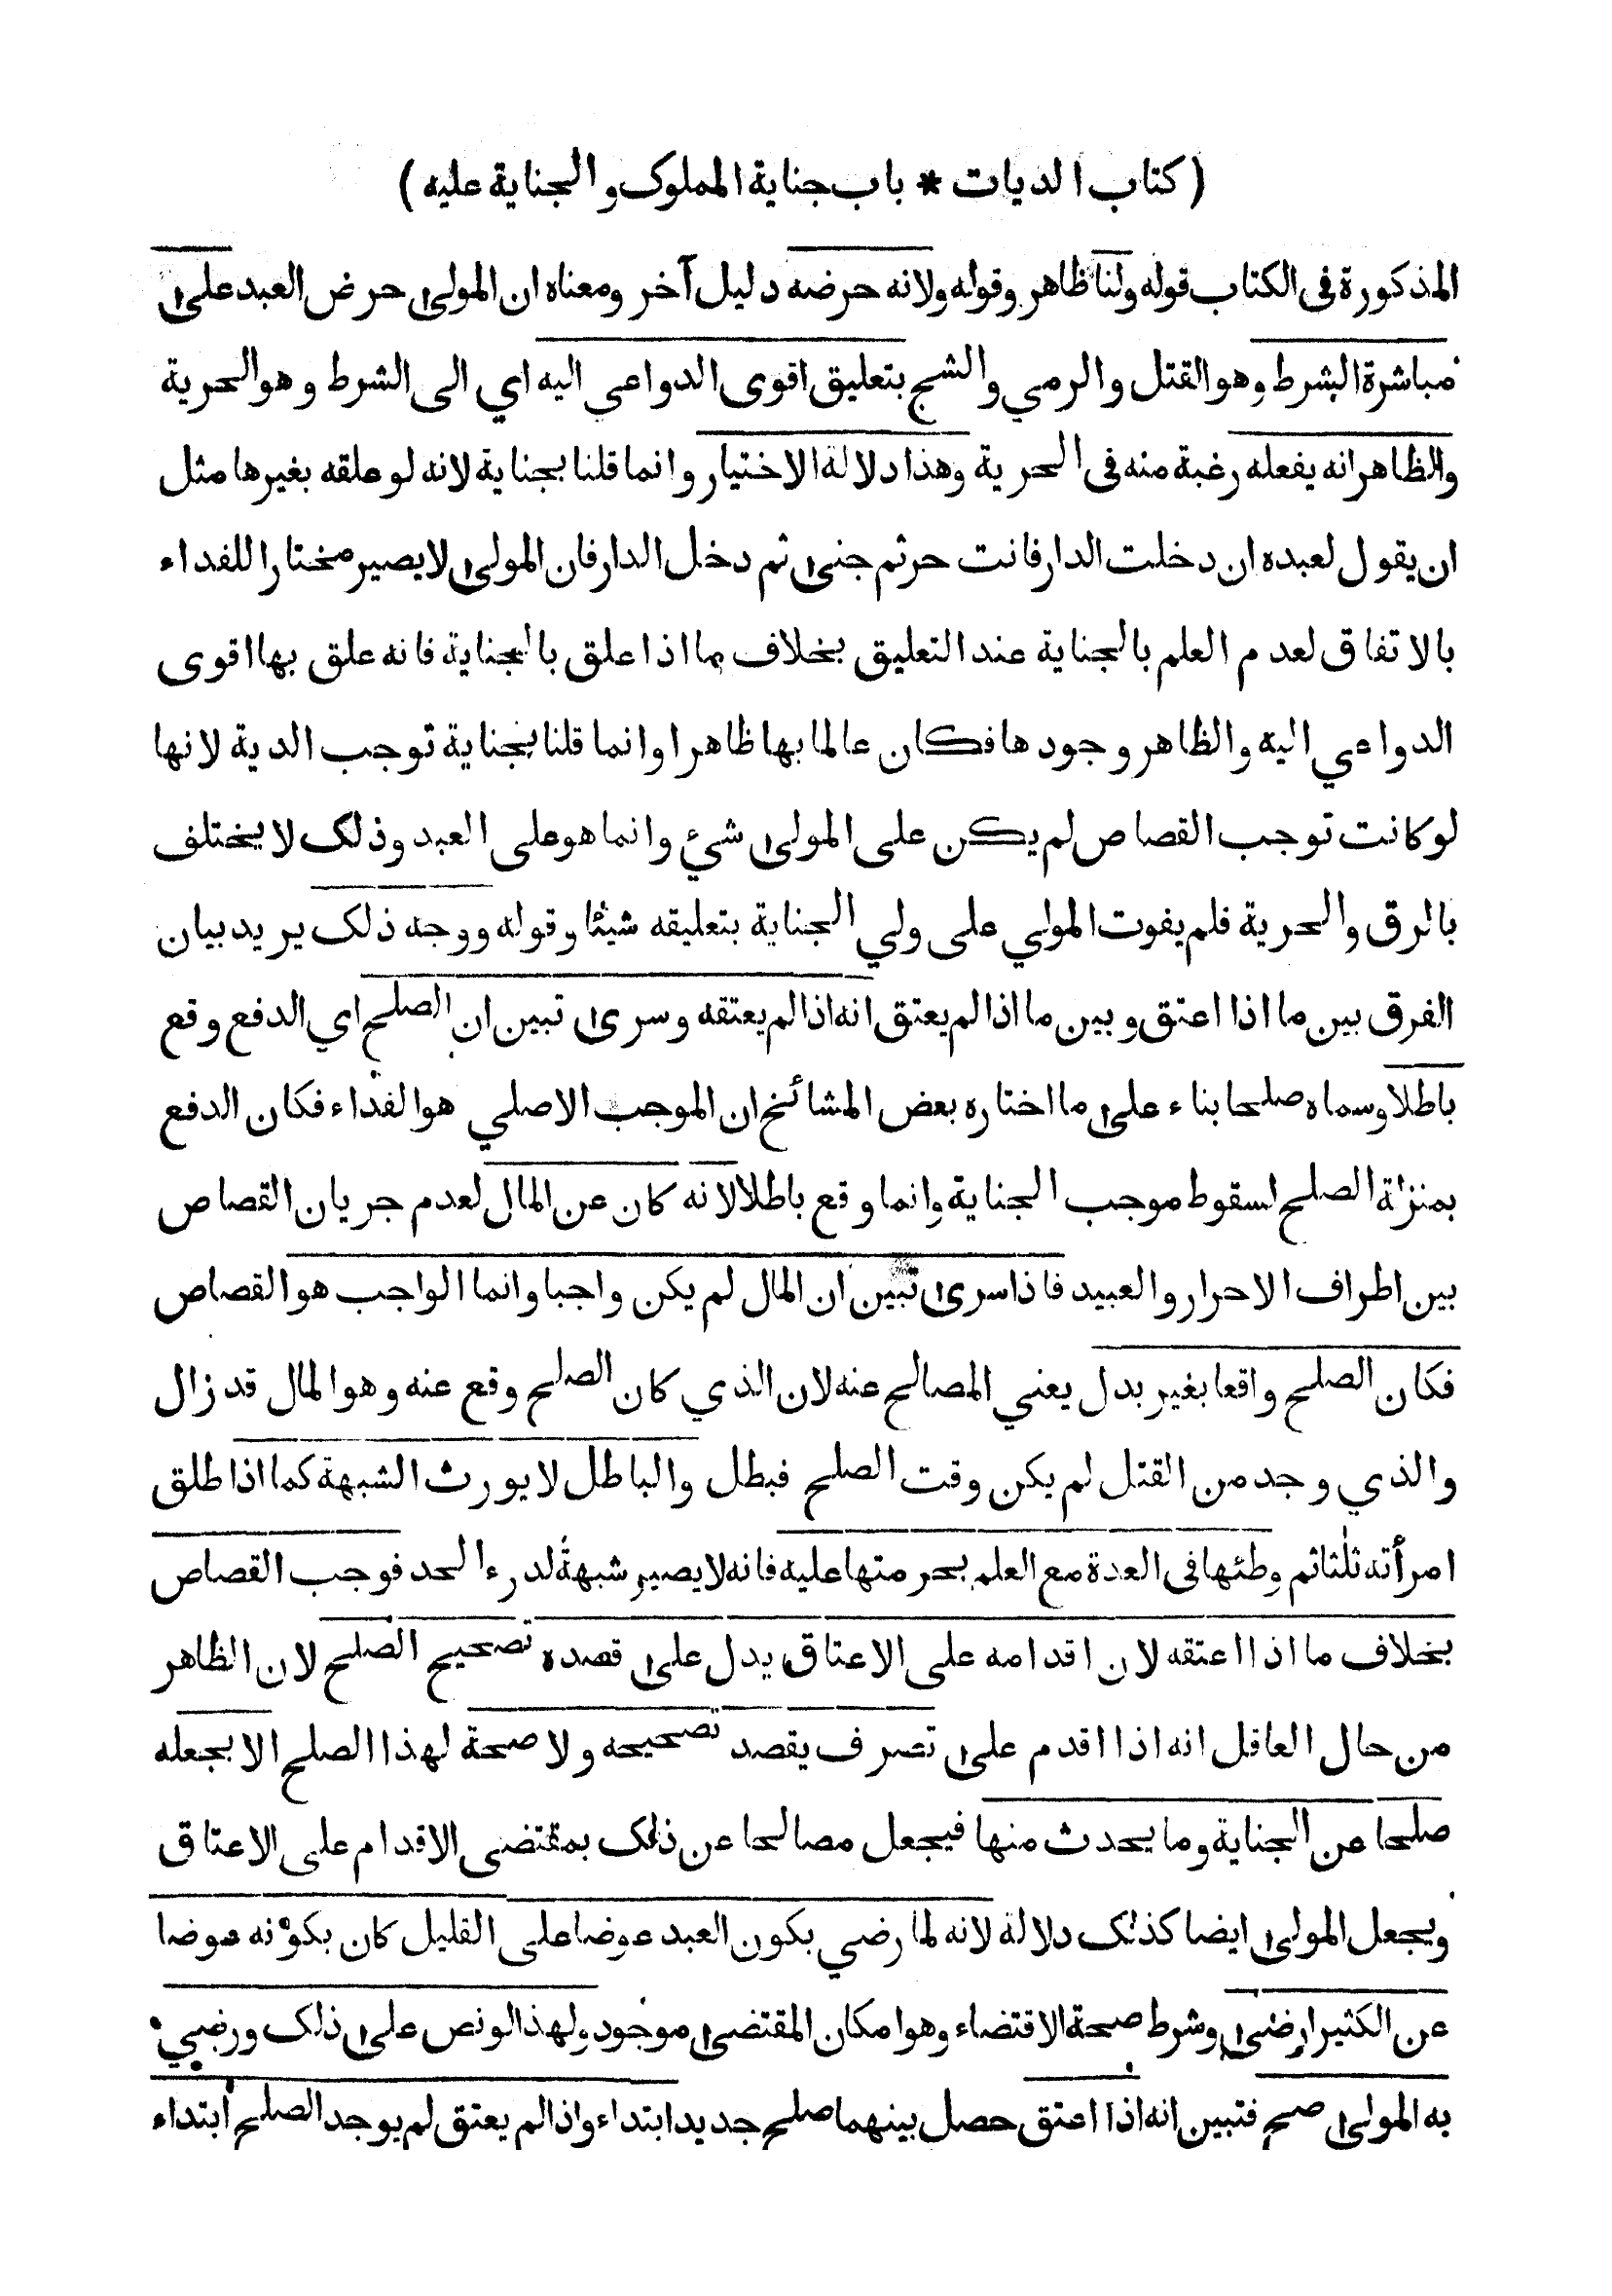 ( كتاب الديات * باب جناية المملوك والجناية عليه )
المذكورة في الكتاب قوله ولنا ظاهر وقوله ولانه حرضه دليل آخر ومعناه ان المولى حرض العبد على
مباشرة الشرط وهو القتل والرمي والشج بتعليق اقوى الدواعي اليه اي الى الشرط وهو الحرية
والظاهر انه يفعله رغبة منه في الحرية وهذا دلالة الاختيار وانما قلنا بجناية لانه لو علقه بغيرها مثل
ان يقول لعبده ان دخلت الدار فانت حر ثم جنى ثم دخل الدار فان المولى لا يصير مختارا للفداء
بالاتفاق لعدم العلم بالجناية عند التعليق بخلاف ما اذا علق بالجناية فانه علق بها اقوى
الدواعي اليه والظاهر وجودها فكان عالما بها ظاهرا وانما قلنا بجناية توجب الدية لانها
لو كانت توجب القصاص لم يكن على المولى شئ وانما هو على العبد وذلك لا يختلف
بالرق والحرية فلم يفوت المولي على ولي الجناية بتعليقه شيئا وقوله ووجه ذلك يريد بيان
الفرق بين ما اذا اعتق وبين ما اذا لم يعتق انه اذا لم يعتقه وسرى تبين ان الصلح اي الدفع وقع
باطلا وسماه صلحا بناء على ما اختاره بعض المشائخ ان الموجب الاصلي هو الفداء فكان الدفع
بمنزلة الصلح لسقوط موجب الجناية وانما وقع باطلا لانه كان عن المال لعدم جريان القصاص
بين اطراف الاحرار والعبيد فاذا سرى تبين ان المال لم يكن واجبا وانما الواجب هو القصاص
فكان الصلح واقعا بغير بدل يعني المصالح عنه لان الذي كان الصلح وقع عنه وهو المال قد زال
والذي وجد من القتل لم يكن وقت الصلح فبطل والباطل لا يورث الشبهة كما اذا طلق
امرأته ثلثا ثم وطئها في العدة مع العلم بحرمتها عليه فانه لا يصير شبهة لدرء الحد فوجب القصاص
بخلاف ما اذا اعتقه لان اقدامه على الاعتاق يدل على قصده تصحيح الصلح لان الظاهر
من حال العاقل انه اذا اقدم على تصرف يقصد تصحيحه ولا صحة لهذا الصلح الا بجعله
صلحا عن الجناية وما يحدث منها فيجعل مصالحا عن ذلك بمقتضى الاقدام على الاعتاق
ويجعل المولى ايضا كذلك دلالة لانه لما رضي بكون العبد عوضا على القليل كان بكونه عوضا
عن الكثير ارضى وشرط صحة الاقتضاء وهو امكان المقتضى موجود ولهذا لو نص على ذلك ورضي
به المولى صح فتبين انه اذا اعتق حصل بينهما صلح جديد ابتداء واذا لم يعتق لم يوجد الصلح ابتداء